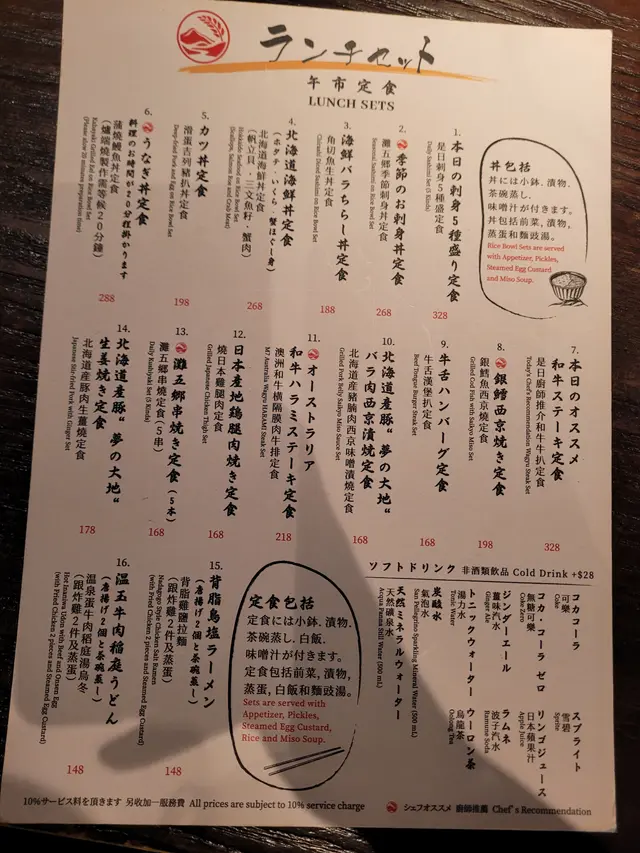 ランチセット
午市定食
LUNCH SETS
丼包括
丼には小鉢.漬物.
茶碗蒸し.
味噌汁が付きます。
丼包括前菜,漬物,
蒸蛋和麵豉湯。
Rice Bowl Sets are served
with Appetizer, Pickles,
Steamed Egg Custard
and Miso Soup.
1. 本日の刺身5種盛り定食
是日刺身5種盛定食
Daily Sashimi Set (5 Kinds)
328
2. 季節のお刺身丼定食
灘五郷季節刺身丼定食
Seasonal Sashimi on Rice Bowl Set
268
3. 海鮮バラちらし丼定食
角切魚生丼定食
Chirashi Diced Sashimi on Rice Bowl Set
188
4. 北海道海鮮丼定食
(ホタテ・いくら・蟹ほぐし身)
北海道海鮮丼定食
(帆立貝、三文魚籽、蟹肉)
Hokkaido Seafood on Rice Bowl Set
(Scallops, Salmon Roe and Crab Meat)
268
5. カツ丼定食
滑蛋吉列豬扒丼定食
Deep-fried Pork and Egg on Rice Bowl Set
198
6. うなぎ丼定食
料理のお時間が20分程掛かります
蒲燒鰻魚丼定食
(爐端燒製作需等候20分鐘)
Kabayaki Grilled Eel on Rice Bowl Set
(Please allow 20 minutes preparation time)
288
7. 本日のオススメ
和牛ステーキ定食
是日廚師推介和牛牛扒定食
Today's Chef's Recommendation Wagyu Steak Set
328
8. 銀鱈西京焼き定食
銀鱈魚西京燒定食
Grilled Cod Fish with Saikyo Miso Set
198
9. 牛舌ハンバーグ定食
牛舌漢堡扒定食
Beef Tongue Burger Steak Set
168
10. 北海道産豚“夢の大地“
バラ肉西京漬焼定食
北海道産豬腩肉西京味噌漬燒定食
Grilled Pork Belly Saikyo Miso Sauce Set
168
11. オーストラリア
和牛ハラミステーキ定食
澳洲和牛橫隔膜肉牛排定食
M7 Australia Wagyu HARAMI Steak Set
218
12. 日本産地鶏腿肉焼き定食
燒日本雞腿肉定食
Grilled Japanese Chicken Thigh Set
168
13. 灘五郷串焼き定食(5本)
灘五郷串燒定食(5串)
Daily Kushiyaki Set (5 Kinds)
168
14. 北海道産豚“夢の大地“
生姜焼き定食
北海道産豚肉生薑燒定食
Japanese Stir-fried Pork with Ginger Set
178
ソフトドリンク 非酒類飲品 Cold Drink +$28
コカコーラ
可樂
Coke
コカ・コーラ ゼロ
無糖可樂
Coke Zero
ジンジーエール
薑味汽水
Ginger Ale
トニックウォーター
湯力水
Tonic Water
炭酸水
氣泡水
San Pellegrino Sparkling Mineral Water (500 mL)
天然ミネラルウォーター
天然礦泉水
Acqua Panna Still Water (500 mL)
スプライト
雪碧
Sprite
リンゴジュース
日本蘋果汁
Apple Juice
ラムネ
波子汽水
Ramune Soda
ウーロン茶
烏龍茶
Oolong Tea
15. 背脂鳥塩ラーメン
(唐揚げ2個と茶碗蒸し)
背脂雞鹽拉麵
(跟炸雞2件及蒸蛋)
Nadagogo Style Chicken Salt Ramen
(with Fried Chicken 2 pieces and Steamed Egg Custard)
148
16. 温玉牛肉稲庭うどん
(唐揚げ2個と茶碗蒸し)
温泉蛋牛肉稻庭湯烏冬
(跟炸雞2件及蒸蛋)
Hot Inaniwa Udon with Beef and Onsen Egg
(with Fried Chicken 2 pieces and Steamed Egg Custard)
148
定食包括
定食には小鉢.漬物.
茶碗蒸し.白飯.
味噌汁が付きます。
定食包括前菜,漬物,
蒸蛋,白飯和麵豉湯。
Sets are served with
Appetizer, Pickles,
Steamed Egg Custard,
Rice and Miso Soup.
10%サービス料を頂きます 另收加一服務費 All prices are subject to 10% service charge
シェフオススメ 廚師推薦 Chef's Recommendation